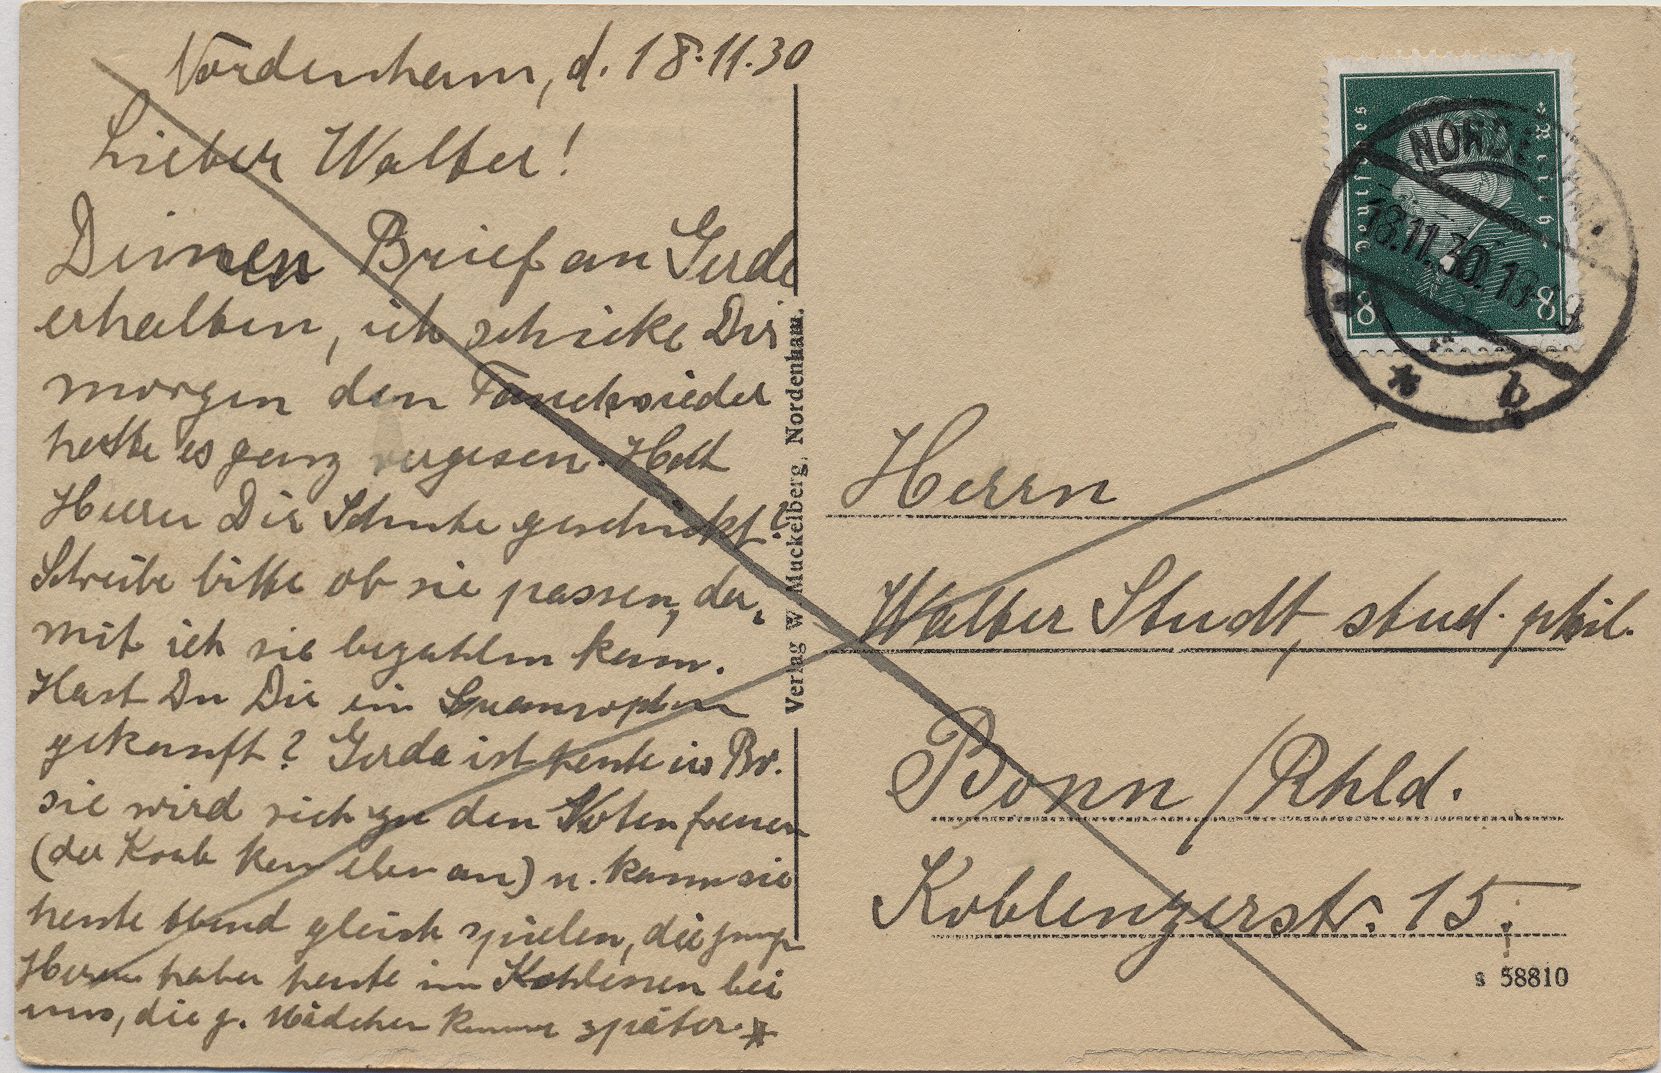 Nordenham, d. 18.11.30
Lieber Walter!
Deinen Brief an Gerda
erhalten, ich schicke Dir
morgen den Fauch wieder
hatte es ganz vergesen. Hat
Heuer Dir Schuhe geschickt?
Schreibe bitte ob sie passen, da-
mit ich sie bezahlen kann.
Hast Du Dir ein
gekauft? Gerda ist heute in Br.
sie wird sich zu den Noten freuen
(der Korb kam eben an) u. kann sie
heute Abend gleich spielen, die jung
Herren haben heute im Kohlessen bei
uns, die j. Mädchen kommen später.
Verlag W. Muckelberg, Nordenham.
Deutsches Reich
8 8
NORDENHAM
18.11.30. 18-19
* b
Herrn
Walter Studt, stud. phil.
Bonn / Rhld.
Koblenzerstr. 15.
s 58810